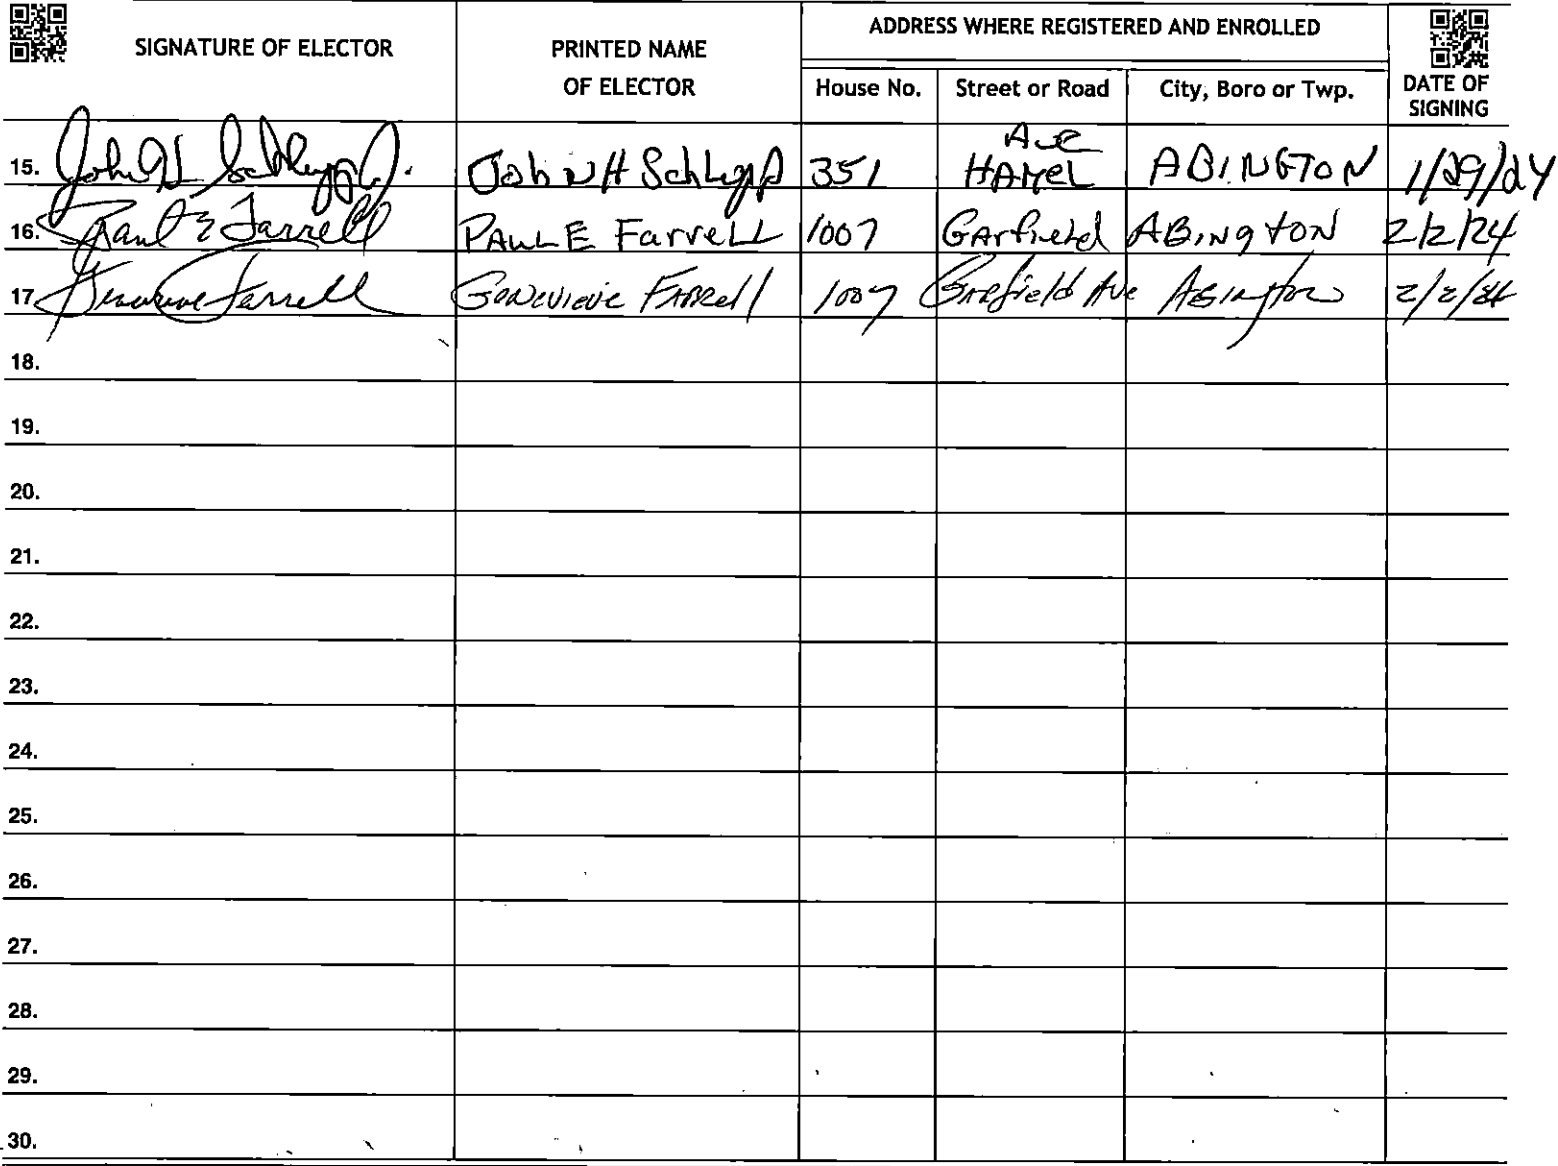 SIGNATURE OF ELECTOR
PRINTED NAME
OF ELECTOR
ADDRESS WHERE REGISTERED AND ENROLLED
House No. Street or Road City, Boro or Twp.
DATE OF
SIGNING
Ave
15. John H Schlegg 351 HAMEL ABINGTON 1/29/24
16. Paul E Farrell PAUL E FarrelL 1007 GArfield ABingtoN 2/2/24
17. Genevieve Farrell Genevieve FARRell 1007 GARfield Ave ABington 2/2/24
18.
19.
20.
21.
22.
23.
24.
25.
26.
27.
28.
29.
30.